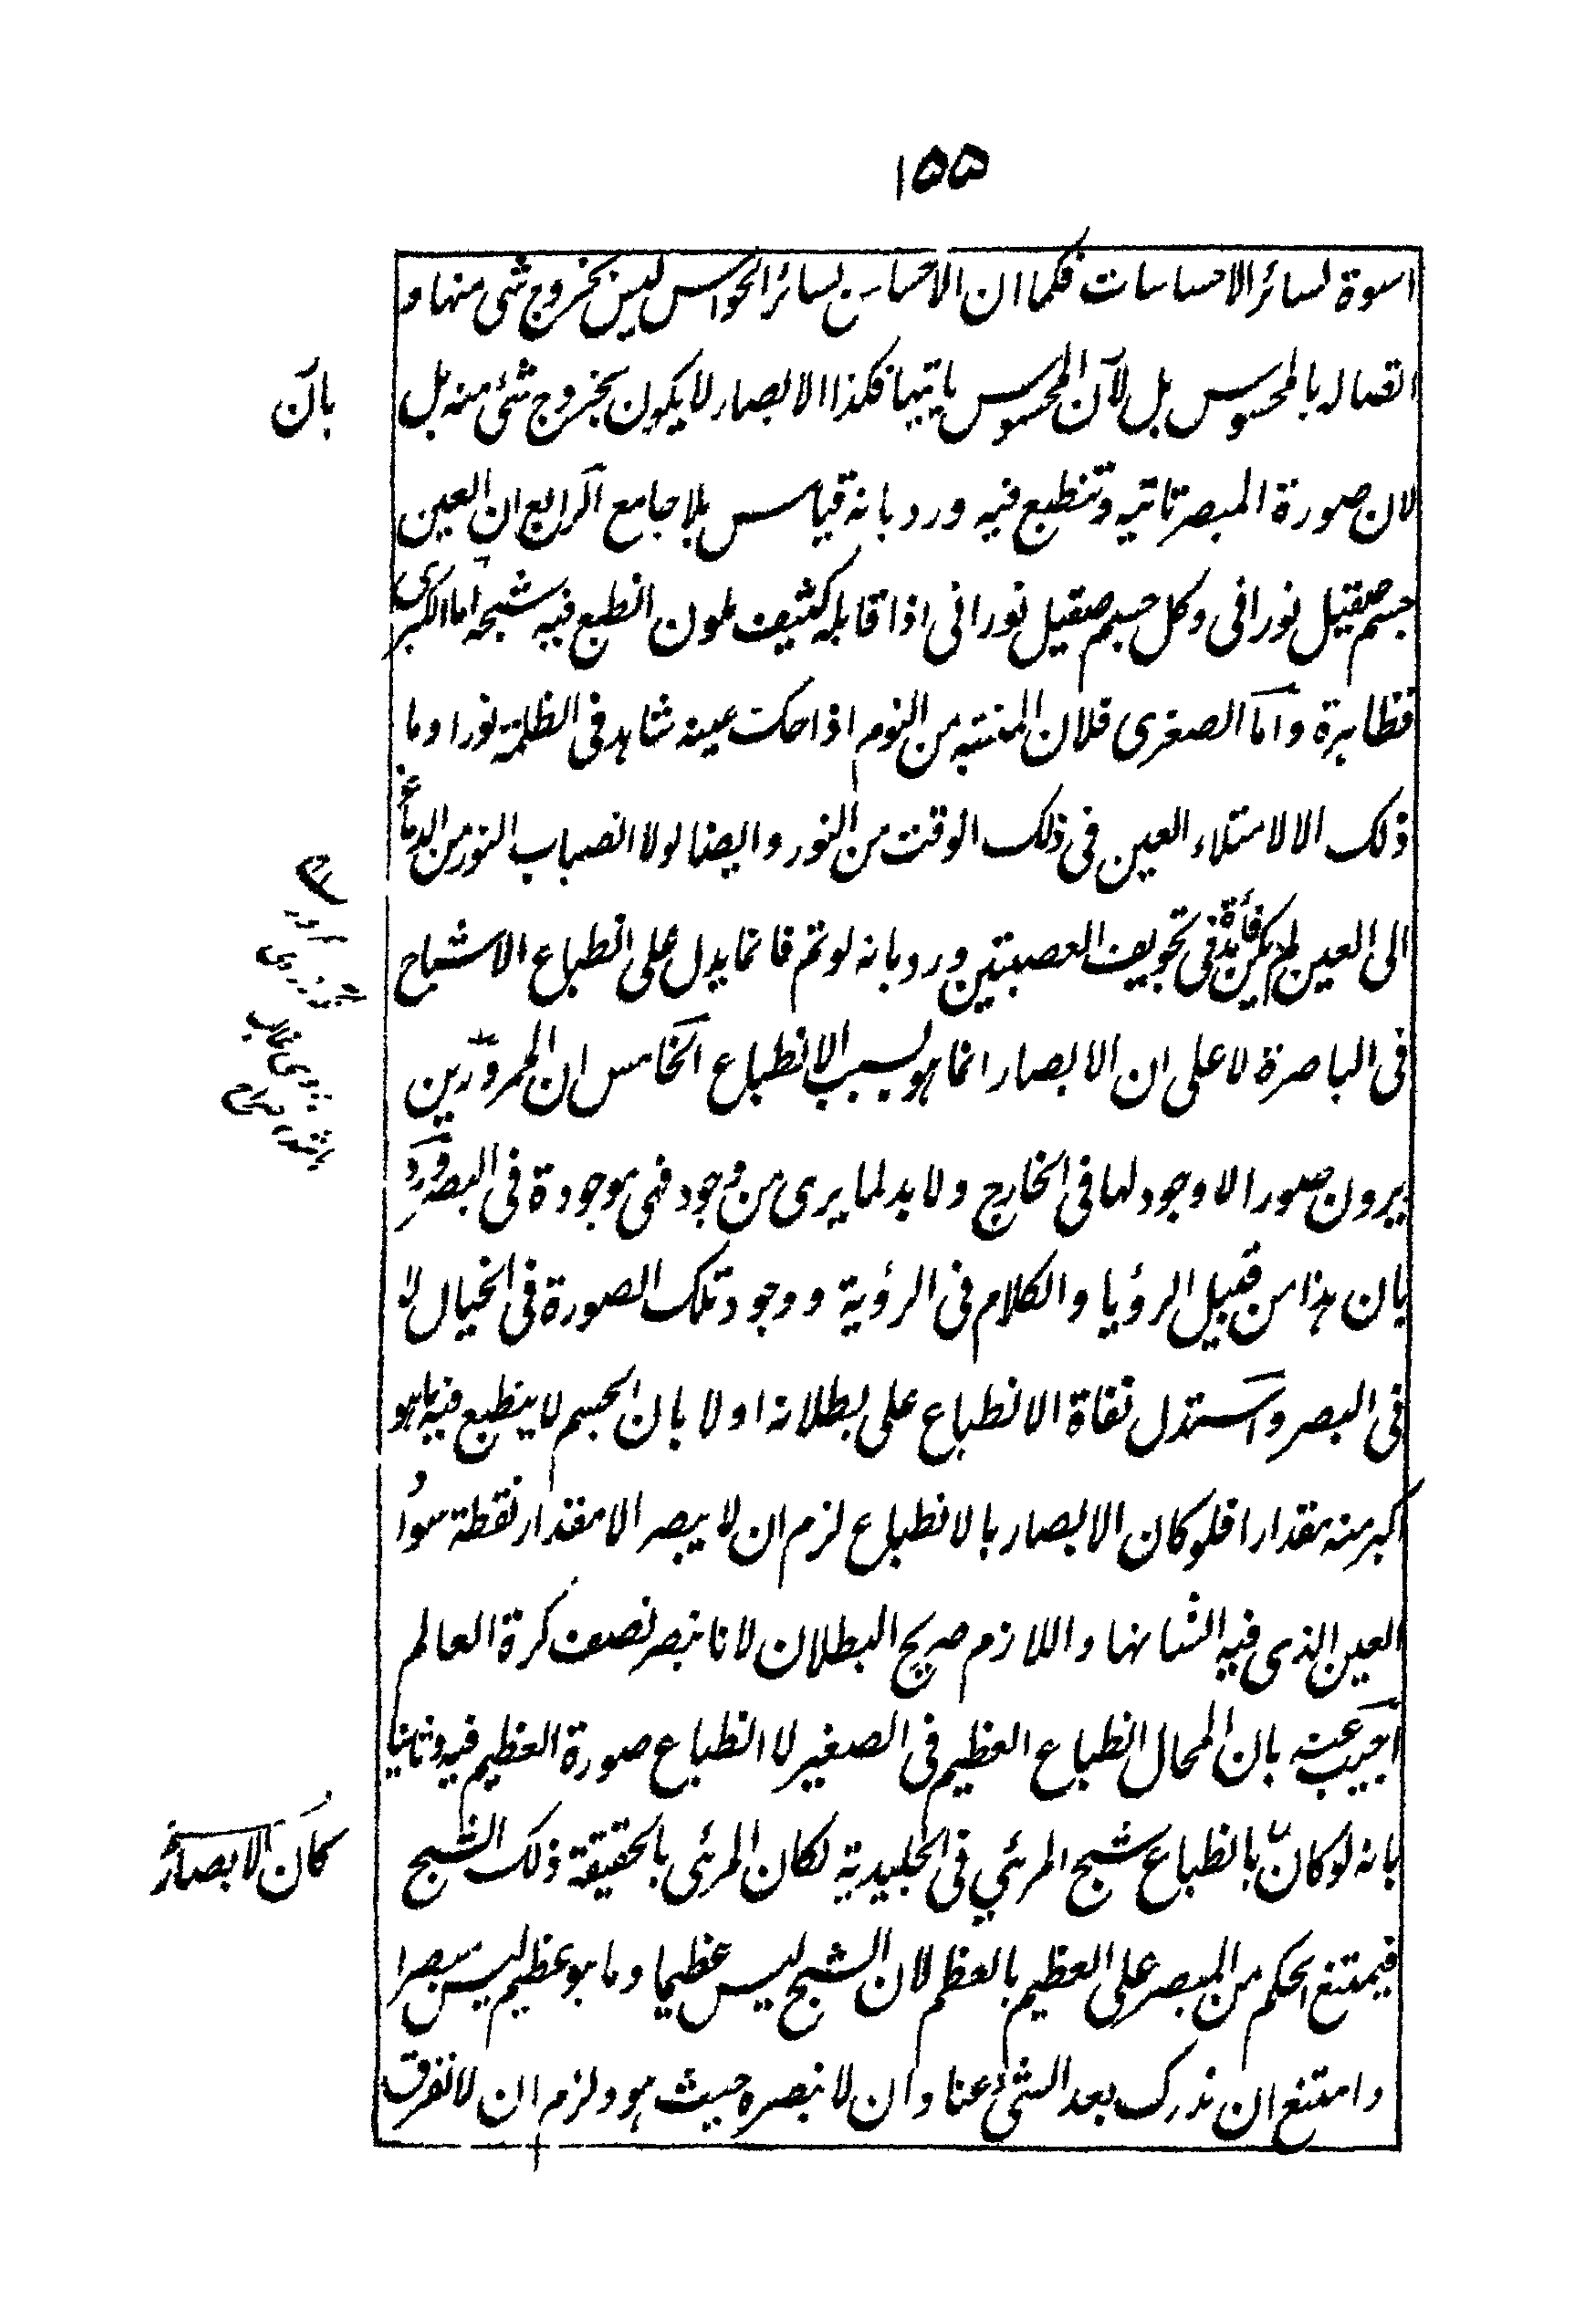 ١٥٥
اسوة لسائر الاحساسات فكما ان الاحساس لسائر الحواس ليس بخروج شئ منها و
اتصاله بالمحسوس بل لان المحسوس ياتيها فكذا الابصار لا يكون بخروج شئ منه بل
بان
لان صورة المبصر تاتيه وتنطبع فيه ورد بانه قياس بلا جامع الرابع ان العين
جسم صقيل نورانى وكل جسم صقيل نورانى اذا قابله كثيف ملون انطبع فيه شبحه اما الكبرى
فظاهرة واما الصغرى فلان المنتبه من النوم اذا حكت عينه شاهد فى الظلمة نورا وما
ذلك الا لامتلاء العين فى ذلك الوقت من النور وايضا لولا انصباب النور من الدماغ
الى العين لم يكن فائدة فى تجويف العصبتين ورد بانه لو تم فانما يدل على انطباع الاشباح
فى الباصرة لا على ان الابصار انما هو بسبب الانطباع الخامس ان الممرورين
يرون صورا لا وجود لها فى الخارج ولا بد لما يرى من وجود فهى موجودة فى البصر ورد
بان هذا من قبيل الرؤيا والكلام فى الرؤية ووجود تلك الصورة فى الخيال لا
فى البصر واستدل نفاة الانطباع على بطلانه اولا بان الجسم لا ينطبع فيه ما هو
اكبر منه مقدارا فلو كان الابصار بالانطباع لزم ان لا يبصر الا مقدار نقطة سواد
العين الذى فيه انسانها واللازم صريح البطلان لانا نبصر نصف كرة العالم
اجيب عنه بان المحال انطباع العظيم فى الصغير لا انطباع صورة العظيم فيه وثانيا
بانه لو كان بانطباع شبح المرئي فى الجليدية لكان المرئى بالحقيقة ذلك الشبح
كان الابصار
فيمتنع الحكم من المبصر على العظيم بالعظم لان الشبح ليس عظيما وما هو عظيم ليس مبصرا
وامتنع ان ندرك بعد الشئ عنا وان لا نبصره حيث هو ولزم ان لا نفرق